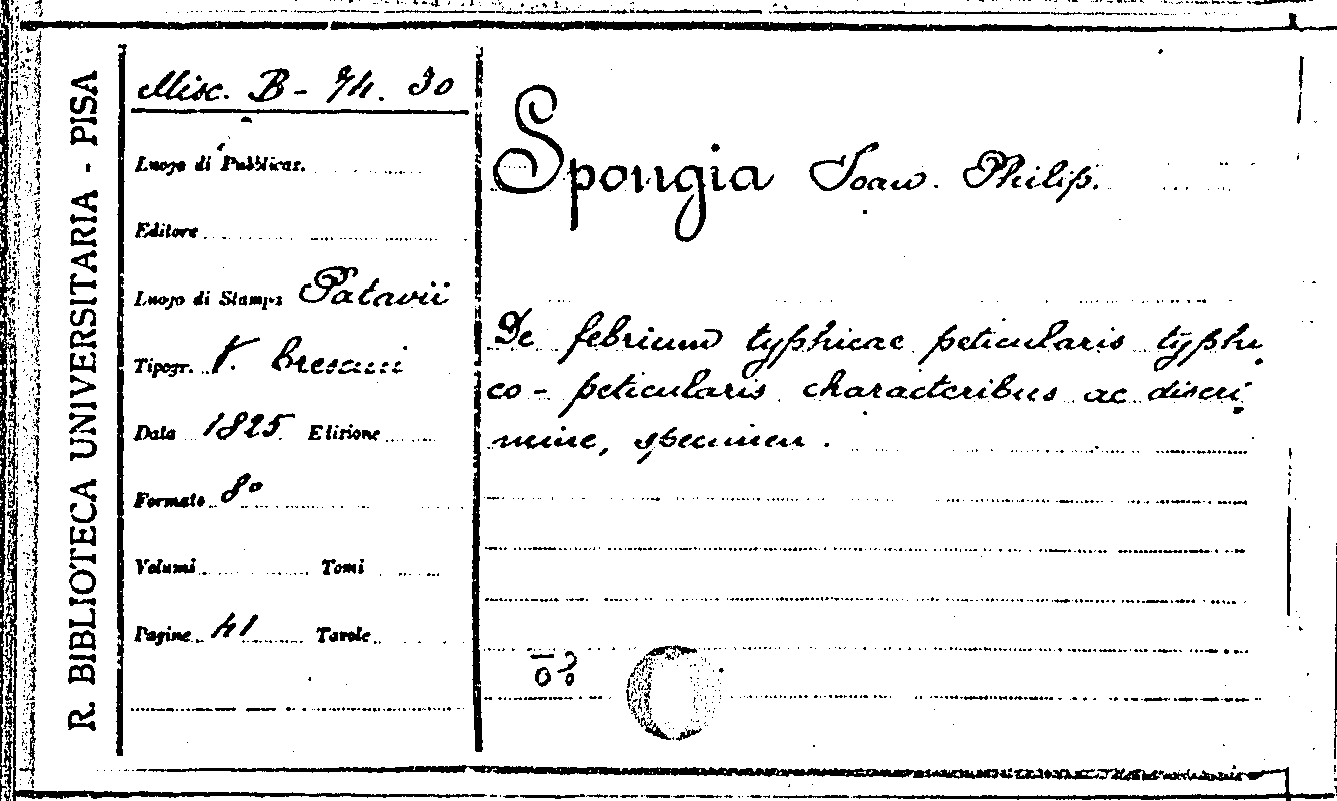 R. BIBLIOTECA UNIVERSITARIA - PISA
Misc. B - 74. 30
Luogo di Pubblicaz.
Editore
Luogo di Stampa Patavii
Tipogr. V. Crescini
Data 1825 Edizione
Formato 8°
Volumi Tomi
Pagine 41 Tavole
Spongia Joan. Philip.
De febrium typhicae peticularis typhi
co - peticularis characteribus ac discri
mine, specimen.